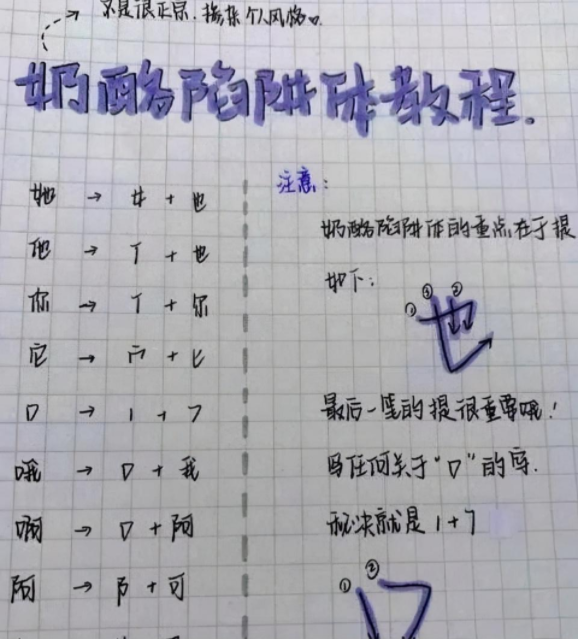 不是很正宗,掺杂个人风格。
奶酪陷阱体教程.
她 → 女 + 也
他 → 亻 + 也
你 → 亻 + 尔
它 → 宀 + 匕
口 → 1 + 7
哦 → 口 + 我
啊 → 口 + 阿
阿 → 阝 + 可
注意:
奶酪陷阱体的重点在于提
如下:
① ③ ②
也
最后一笔的提很重要哦!
写任何关于“口”的字.
秘诀就是 1+7
① ②
口